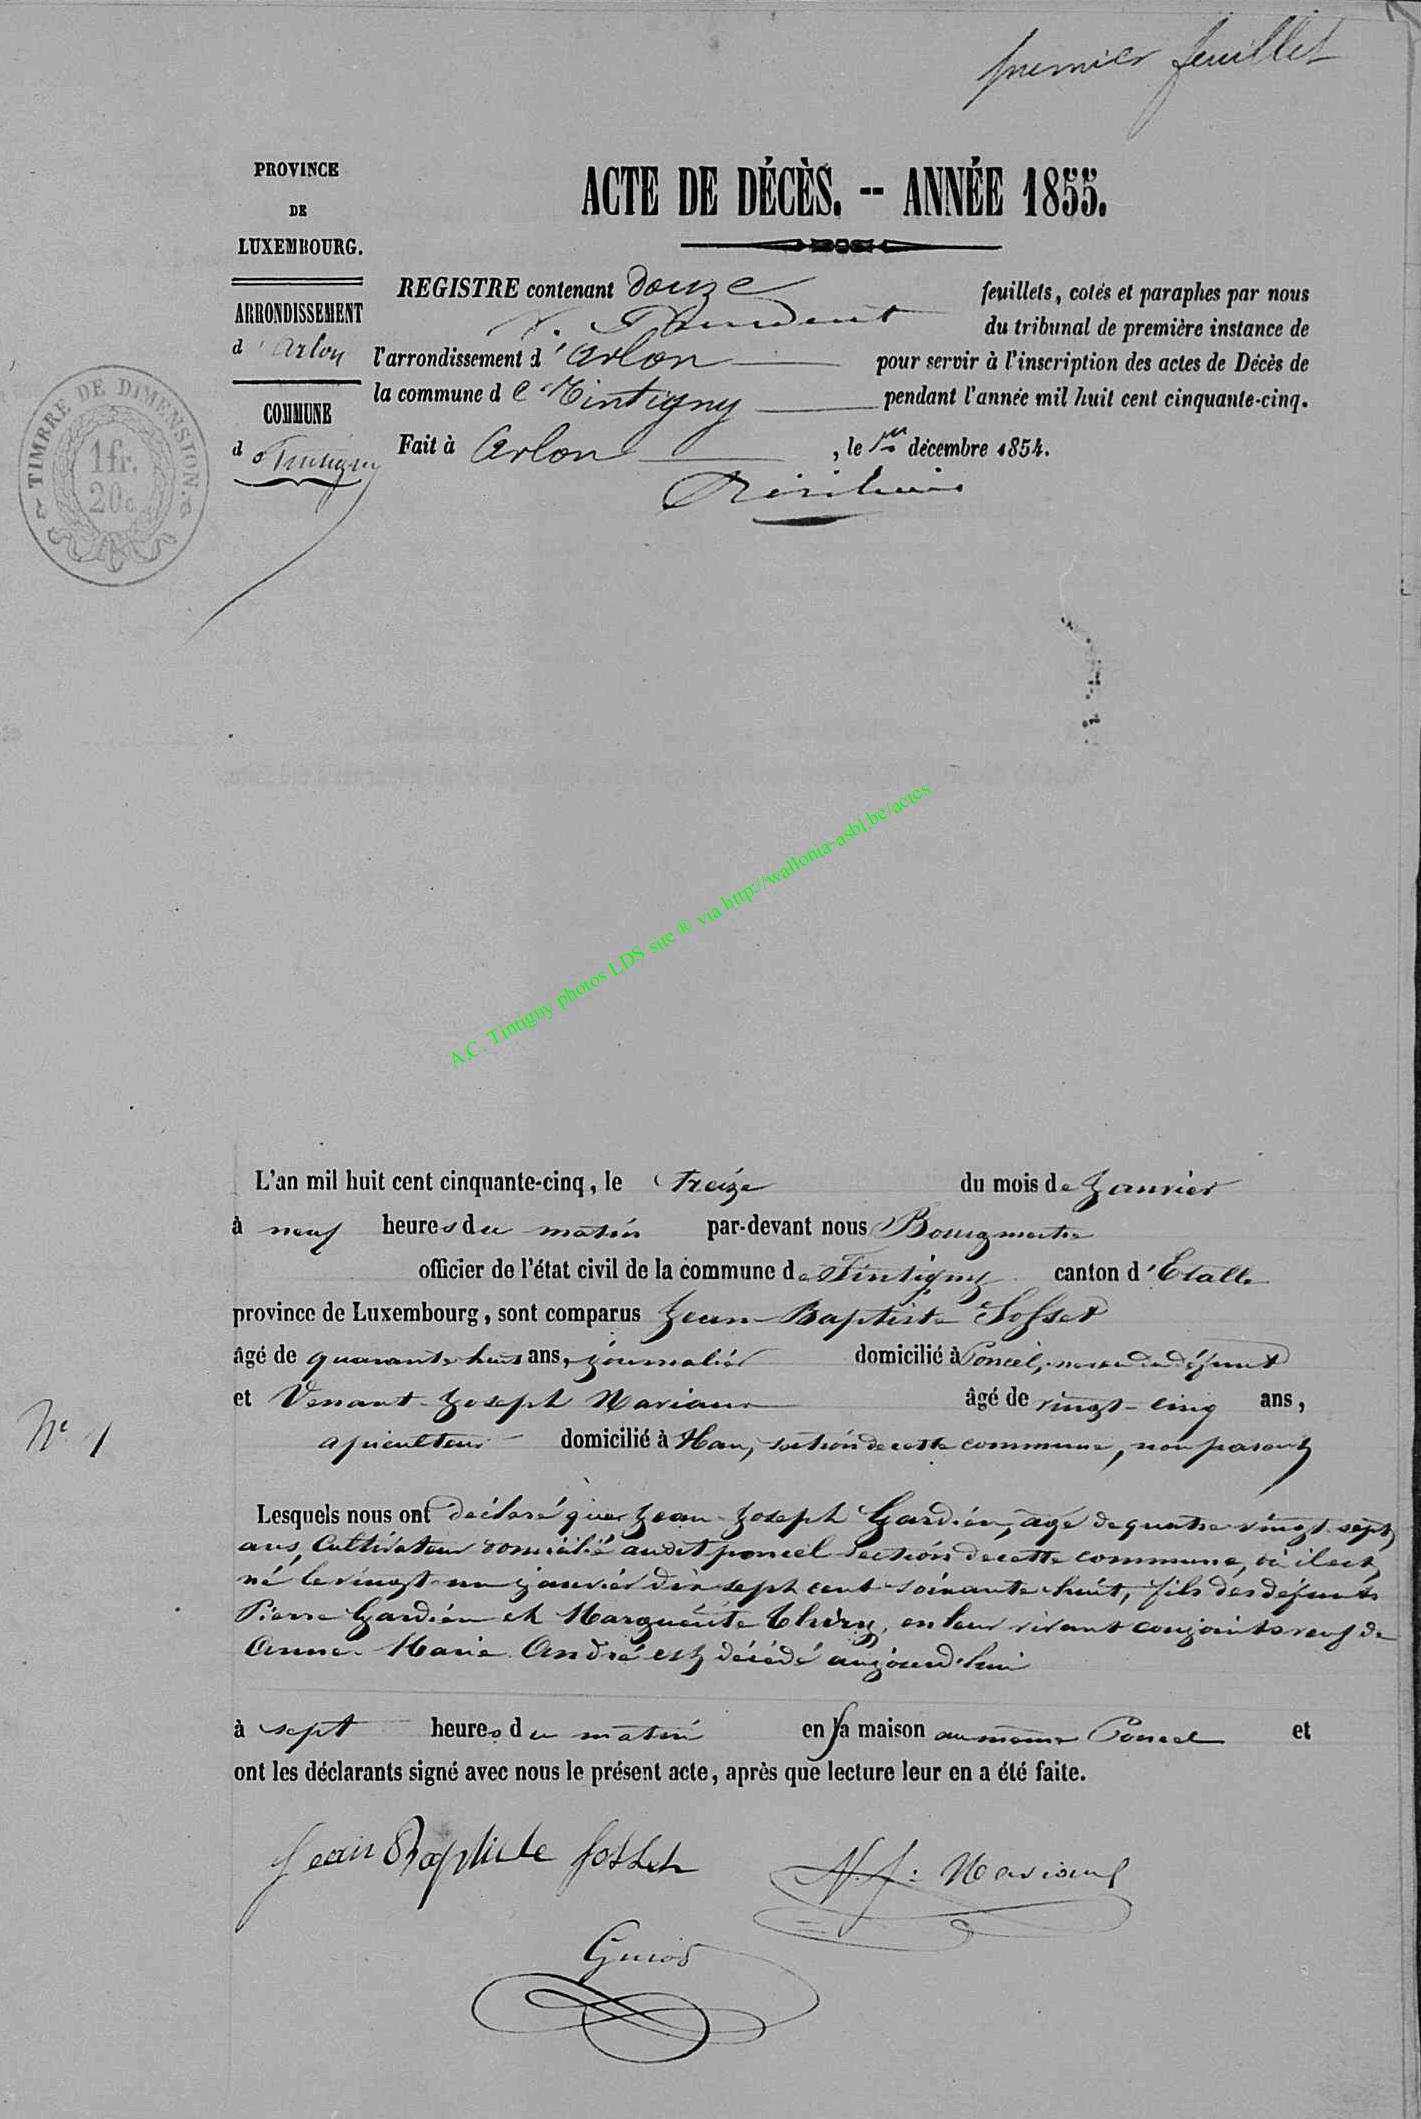 premier feuillet
PROVINCE
DE
LUXEMBOURG.
ACTE DE DÉCÈS. -- ANNÉE 1855.
ARRONDISSEMENT
d'Arlon
COMMUNE
de Tintigny
TIMBRE DE DIMENSION.
1 fr.
20c
REGISTRE contenant douze feuillets, cotés et paraphes par nous
Président du tribunal de première instance de
l'arrondissement d'Arlon pour servir à l'inscription des actes de Décès de
la commune de Tintigny pendant l'année mil huit cent cinquante-cinq.
Fait à Arlon, le 1er décembre 1854.
A.C. Tintigny photos LDS site ® via http://wallonia-asbl.be/actes
L'an mil huit cent cinquante-cinq, le treize du mois de janvier
à neuf heures du matin par-devant nous Bourgmestre
officier de l'état civil de la commune de Tintigny canton d'Etalle
province de Luxembourg, sont comparus Jean Baptiste Fosset
âgé de quarante huit ans, journalier domicilié à Poncel, neveu du défunt
et Venant Joseph Mariaux âgé de vingt-cinq ans,
N° 1
apiculteur domicilié à Han, section de cette commune, non parent
Lesquels nous ont déclaré que Jean Joseph Gardien, âgé de quatre vingt sept
ans, Cultivateur domicilié audit poncel section de cette commune, où il est
né le vingt un janvier dix sept cent soixante huit, fils des défunts
Pierre Gardien et Marguerite Thiry, en leur vivant conjoints veuf de
Anne Marie André est décédé aujourd'hui
à sept heures du matin en sa maison au même Poncel et
ont les déclarants signé avec nous le présent acte, après que lecture leur en a été faite.
Jean Baptiste fosset V. J. Mariaux
Guiot